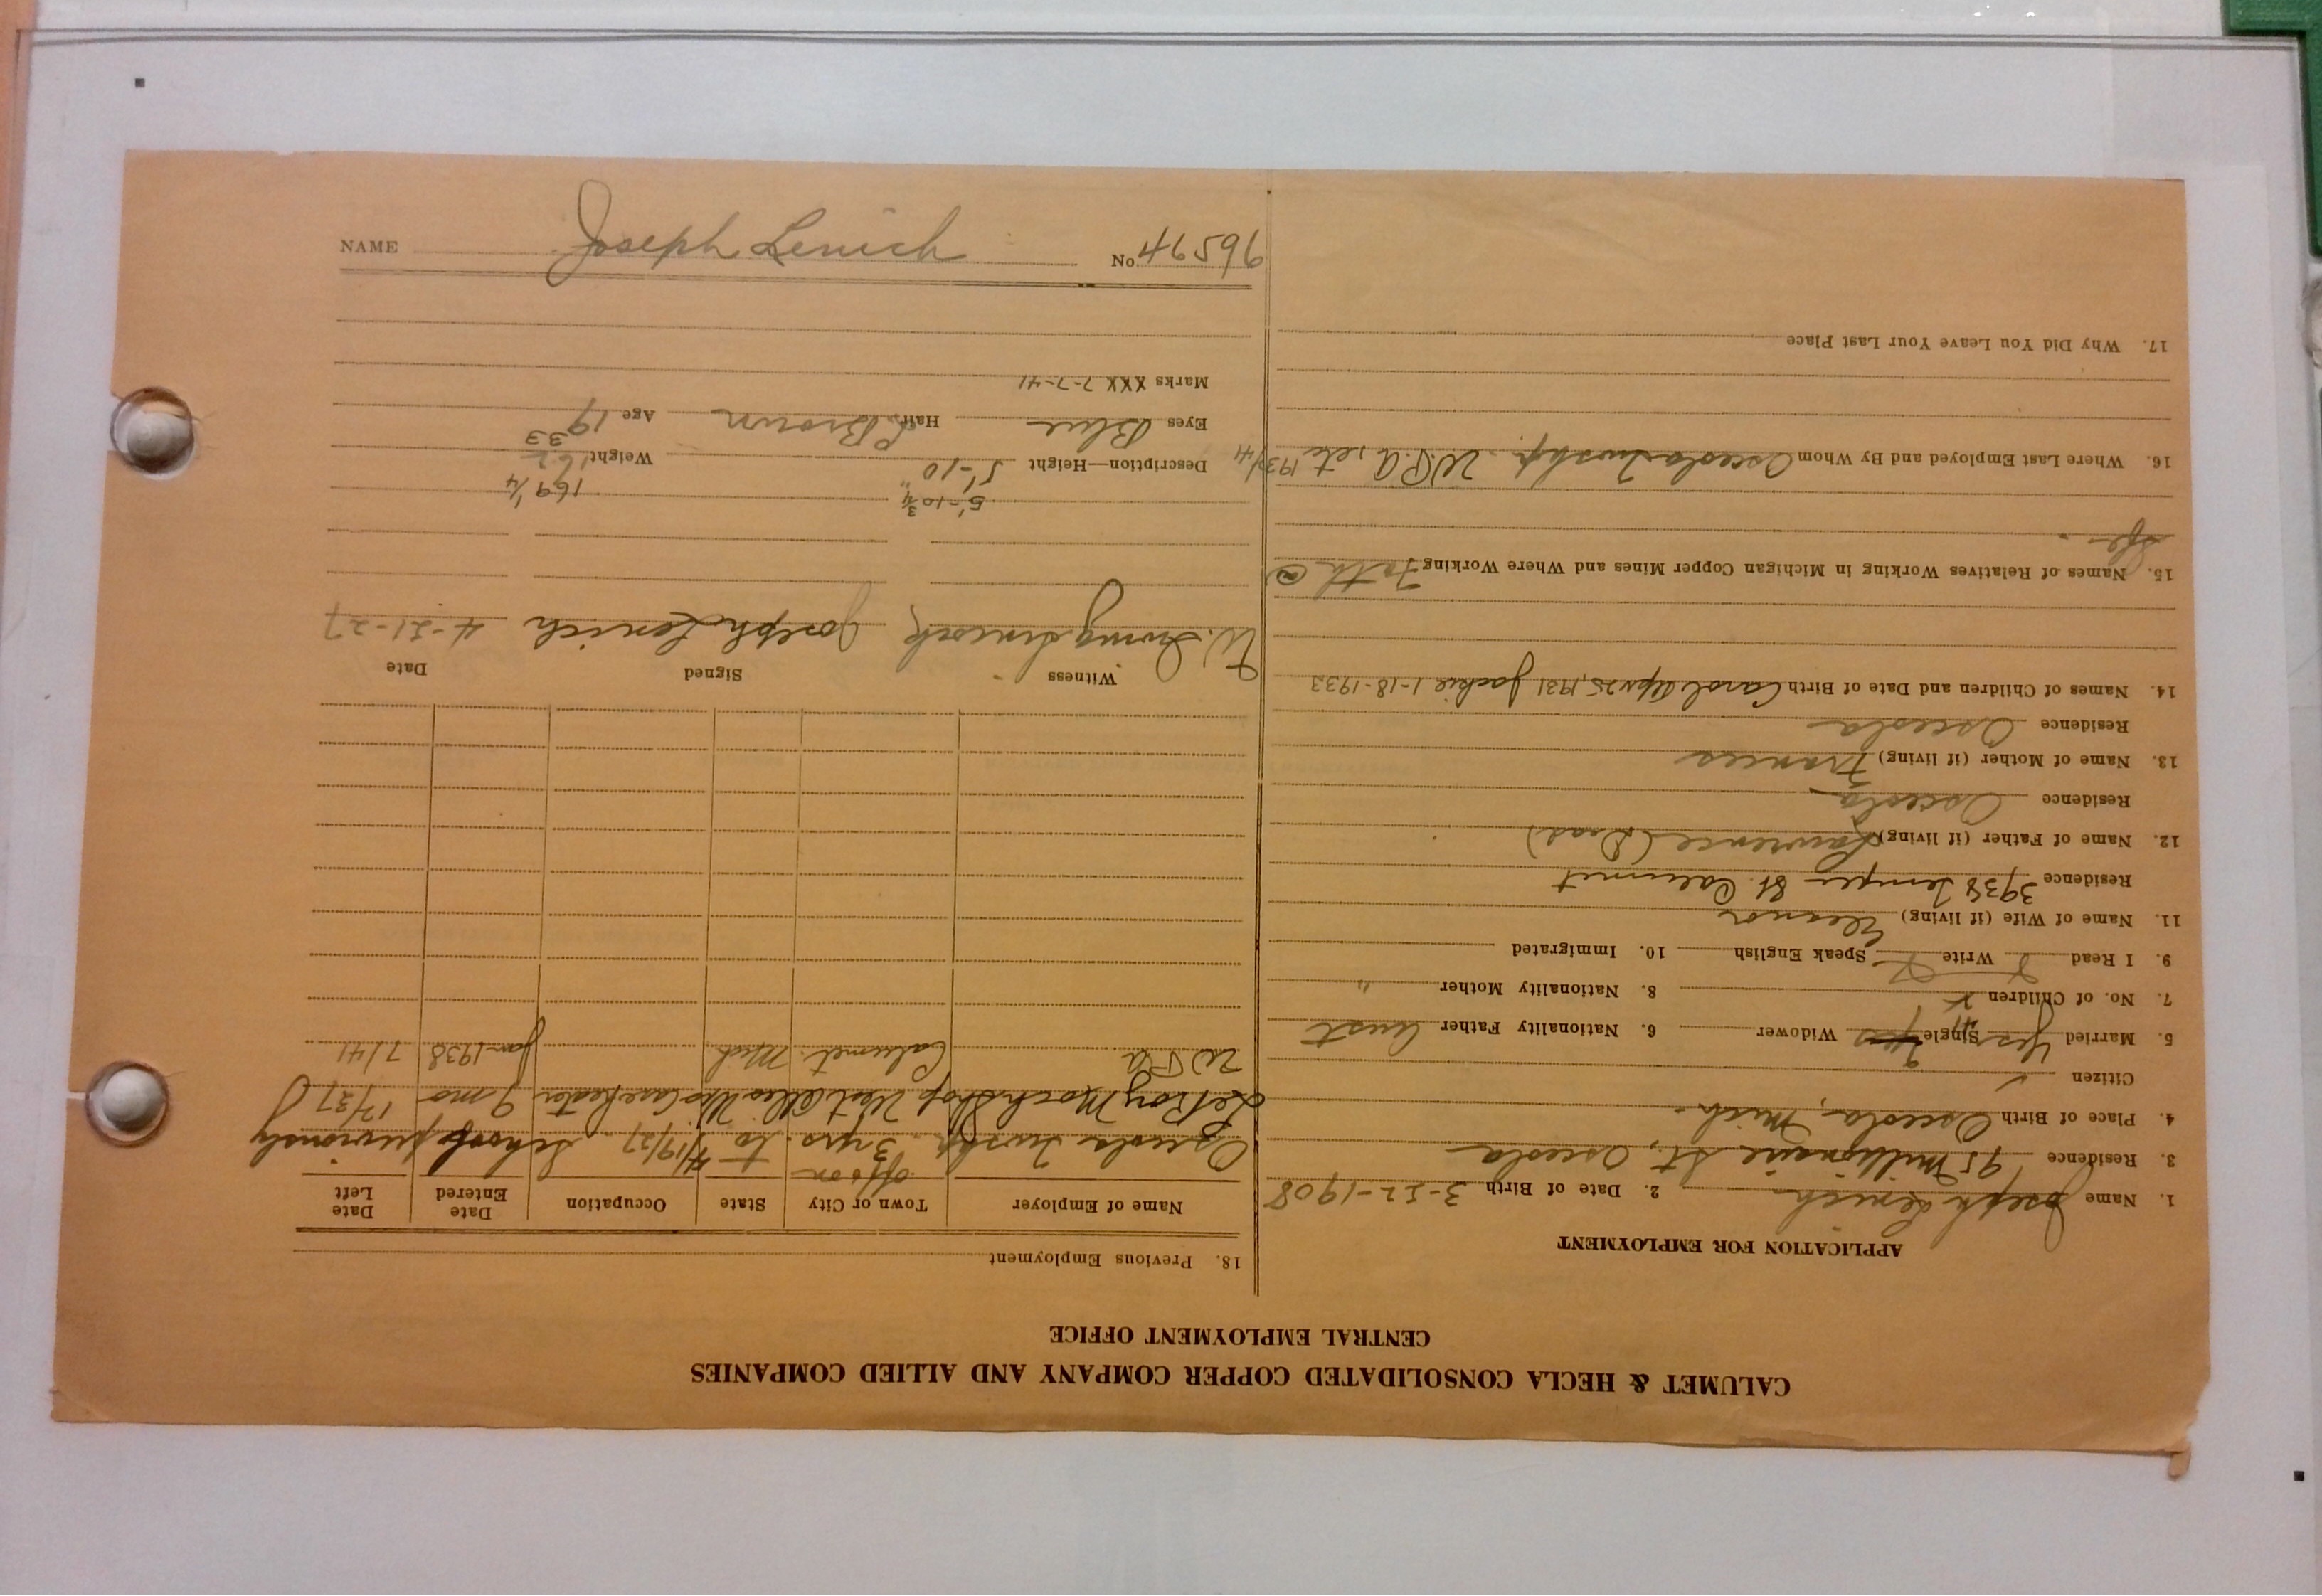 CALUMET & HECLA CONSOLIDATED COPPER COMPANY AND ALLIED COMPANIES
CENTRAL EMPLOYMENT OFFICE
APPLICATION FOR EMPLOYMENT
1. Name Joseph Lenich 2. Date of Birth 3-22-1908
3. Residence 95 Millionaire St., Osceola
4. Place of Birth Osceola, Mich.
Citizen ✓
5. Married Yes Single Yes Widower 6. Nationality Father Aust
7. No. of Children 8. Nationality Mother "
9. I Read Write Speak English 10. Immigrated
11. Name of Wife (if living) Eleanor
Residence 3938 St. Calumet
12. Name of Father (if living) Lawrence (Dead)
Residence Osceola
13. Name of Mother (if living) Frances
Residence Osceola
14. Names of Children and Date of Birth Carol Apr 25, 1931 Jackie 1-18-1933
15. Names of Relatives Working in Michigan Copper Mines and Where Working Fath @
16. Where Last Employed and By Whom Osceola Twshp. W.P.A, etc
17. Why Did You Leave Your Last Place
18. Previous Employment
Name of Employer Town or City State Occupation Date Entered Date Left
off & on
Osceola Twshp. 3 yrs. to 4/19/27 - School previously
LeRoy Mach Shop West Allis Wis 9 mo 12/37
WPA Calumet Mich Jan-1938 7/41
Witness Signed Date
W. Joseph Lenich 4-21-27
5'-10 3/4" 169 1/4
Description—Height 5'-10 Weight 162
33
Eyes Blue Hair Brown Age 19
Marks XXX 7-7-41
NAME Joseph Lenich No 46596